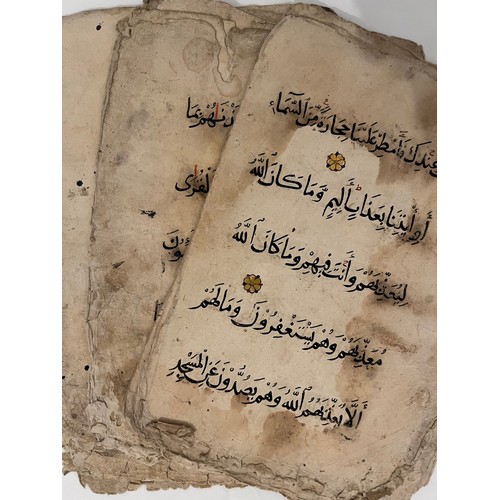 عندك فَأَمْطِرْ عَلَيْنَا حِجَارَةً مِّنَ السَّمَاءِ
أَوِ ائْتِنَا بِعَذَابٍ أَلِيمٍ وَمَا كَانَ اللَّهُ
لِيُعَذِّبَهُمْ وَأَنْتَ فِيهِمْ وَمَا كَانَ اللَّهُ
مُعَذِّبَهُمْ وَهُمْ يَسْتَغْفِرُونَ وَمَا لَهُمْ
أَلَّا يُعَذِّبَهُمُ اللَّهُ وَهُمْ يَصُدُّونَ عَنِ الْمَسْجِدِ
بما
لقرى